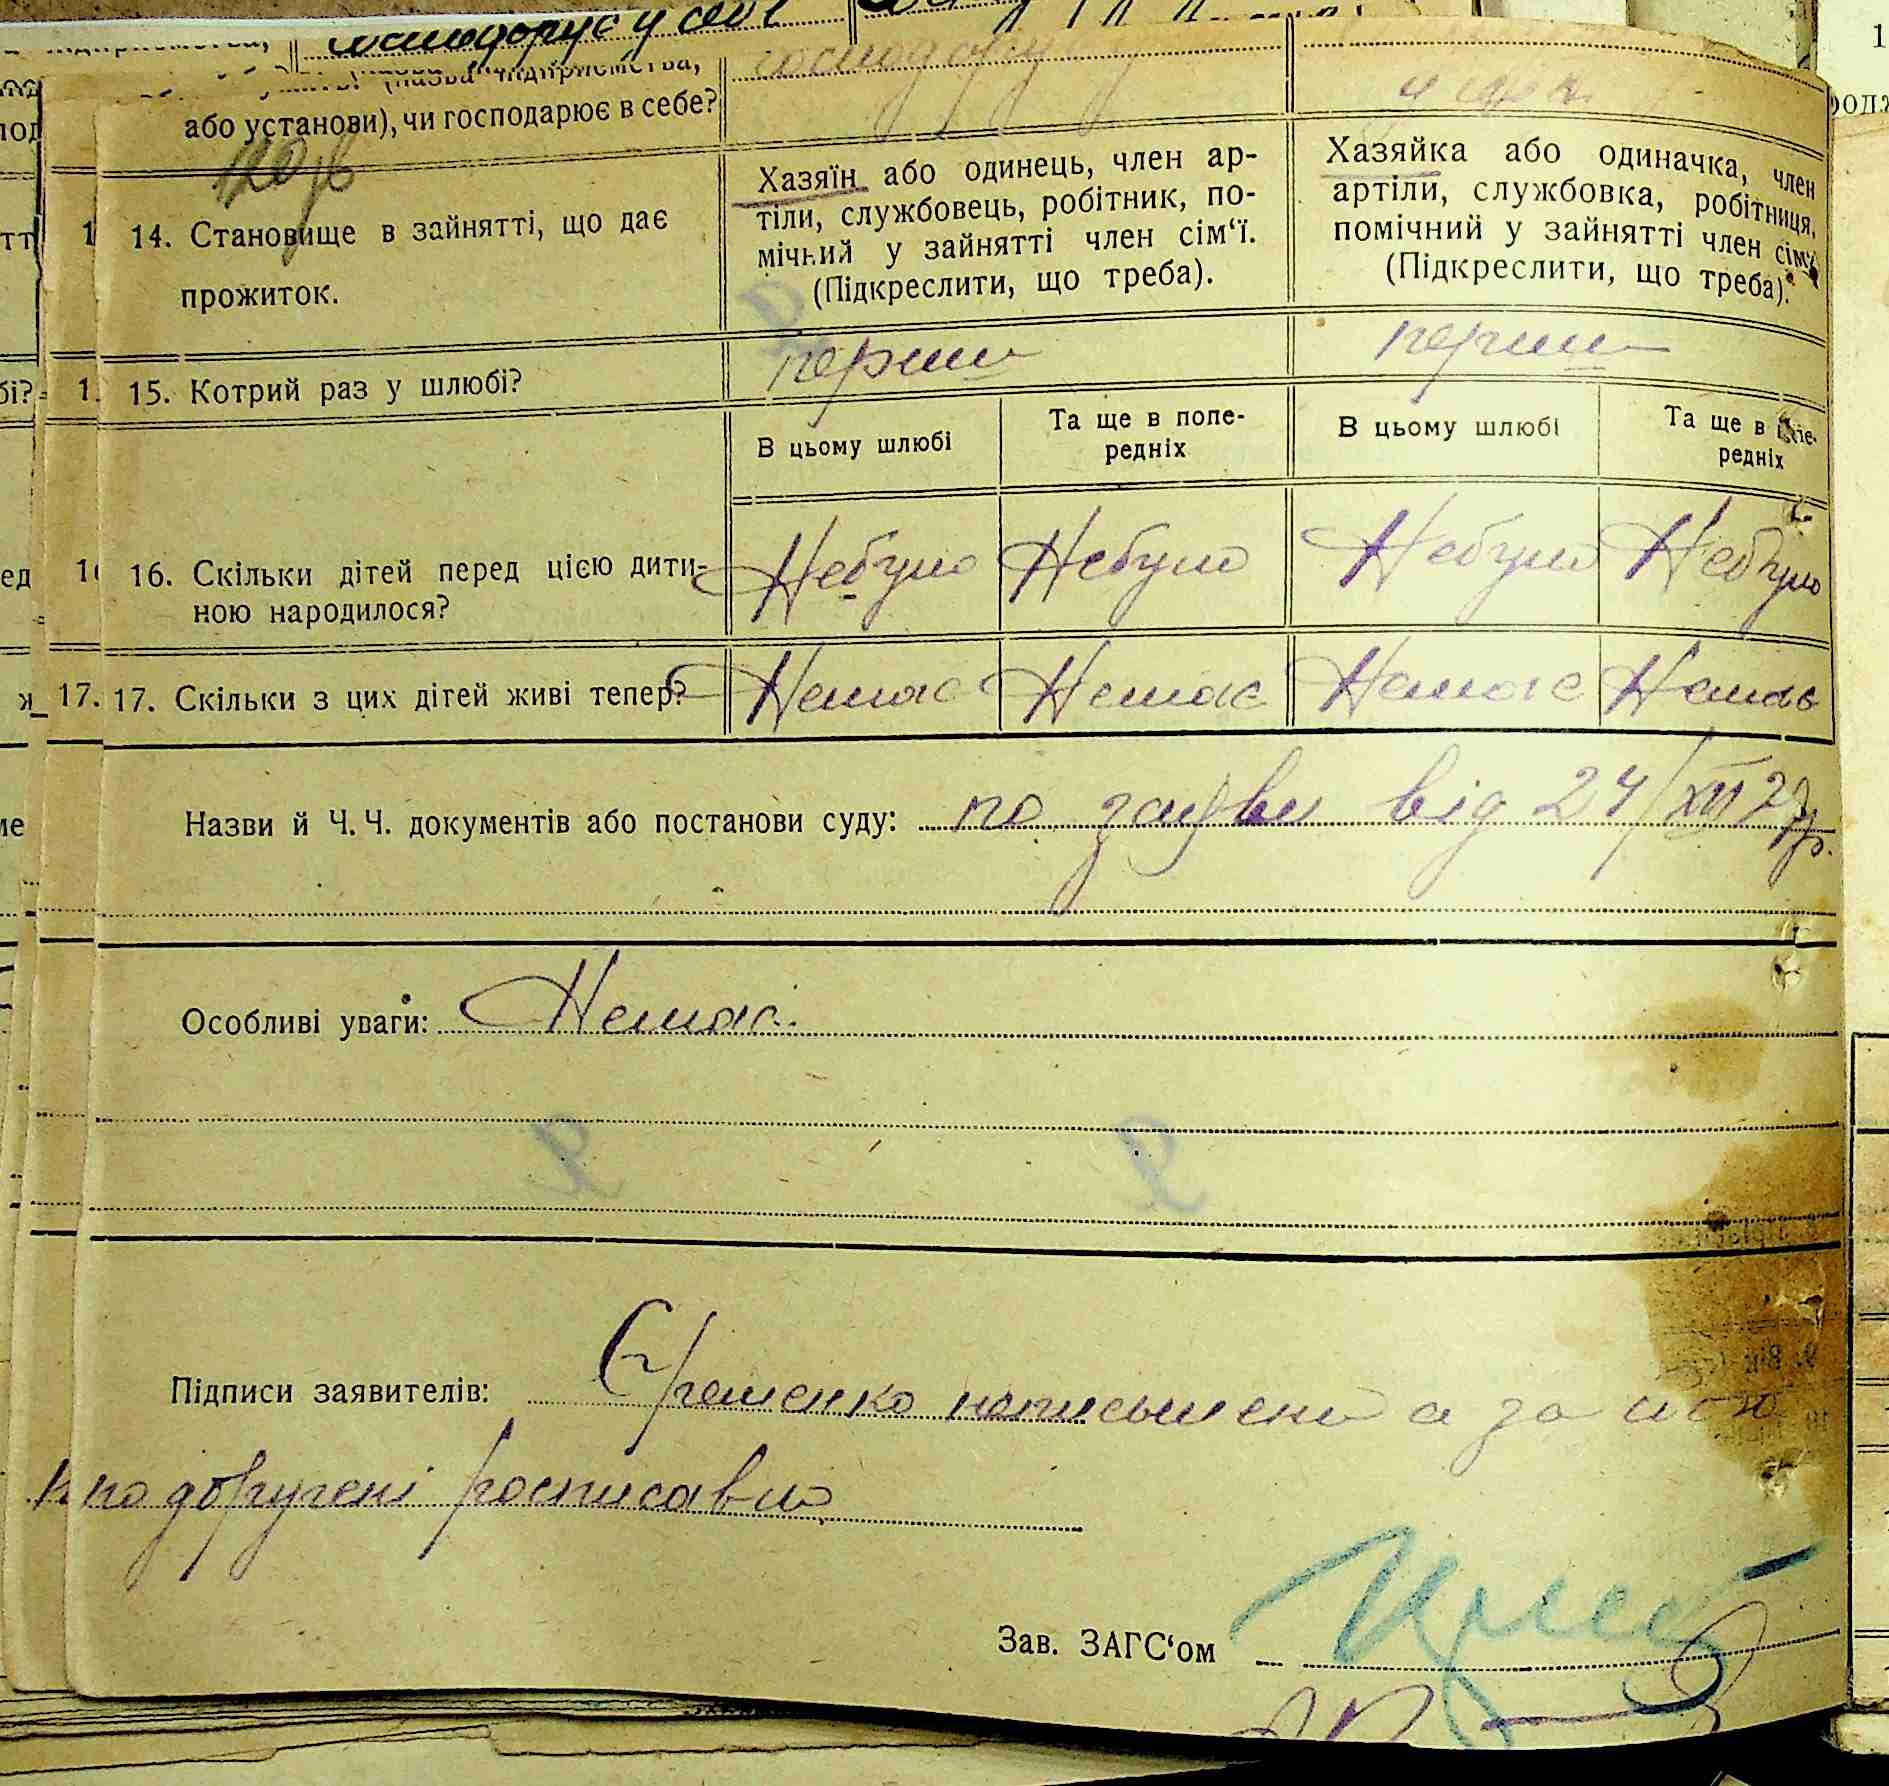 господарує у себе
або установи), чи господарює в себе?
господарує
у себе
14. Становище в зайнятті, що дає
прожиток.
Хазяїн або одинець, член ар-
тіли, службовець, робітник, по-
мічний у зайнятті член сім‘ї.
(Підкреслити, що треба).
Хазяйка або одиначка, член
артіли, службовка, робітниця,
помічний у зайнятті член сім‘ї
(Підкреслити, що треба).
15. Котрий раз у шлюбі?
перший
перший
В цьому шлюбі
Та ще в попе-
редніх
В цьому шлюбі
Та ще в попе-
редніх
16. Скільки дітей перед цією дити-
ною народилося?
Небуло Небуло Небуло Небуло
17. Скільки з цих дітей живі тепер?
Немає Немає Немає Немає
Назви й Ч. Ч. документів або постанови суду: по заяви від 24/XII 27р.
Особливі уваги: Немає.
Підписи заявителів: Єременко неписьмений а за него
по доручені росписався
Зав. ЗАГС‘ом